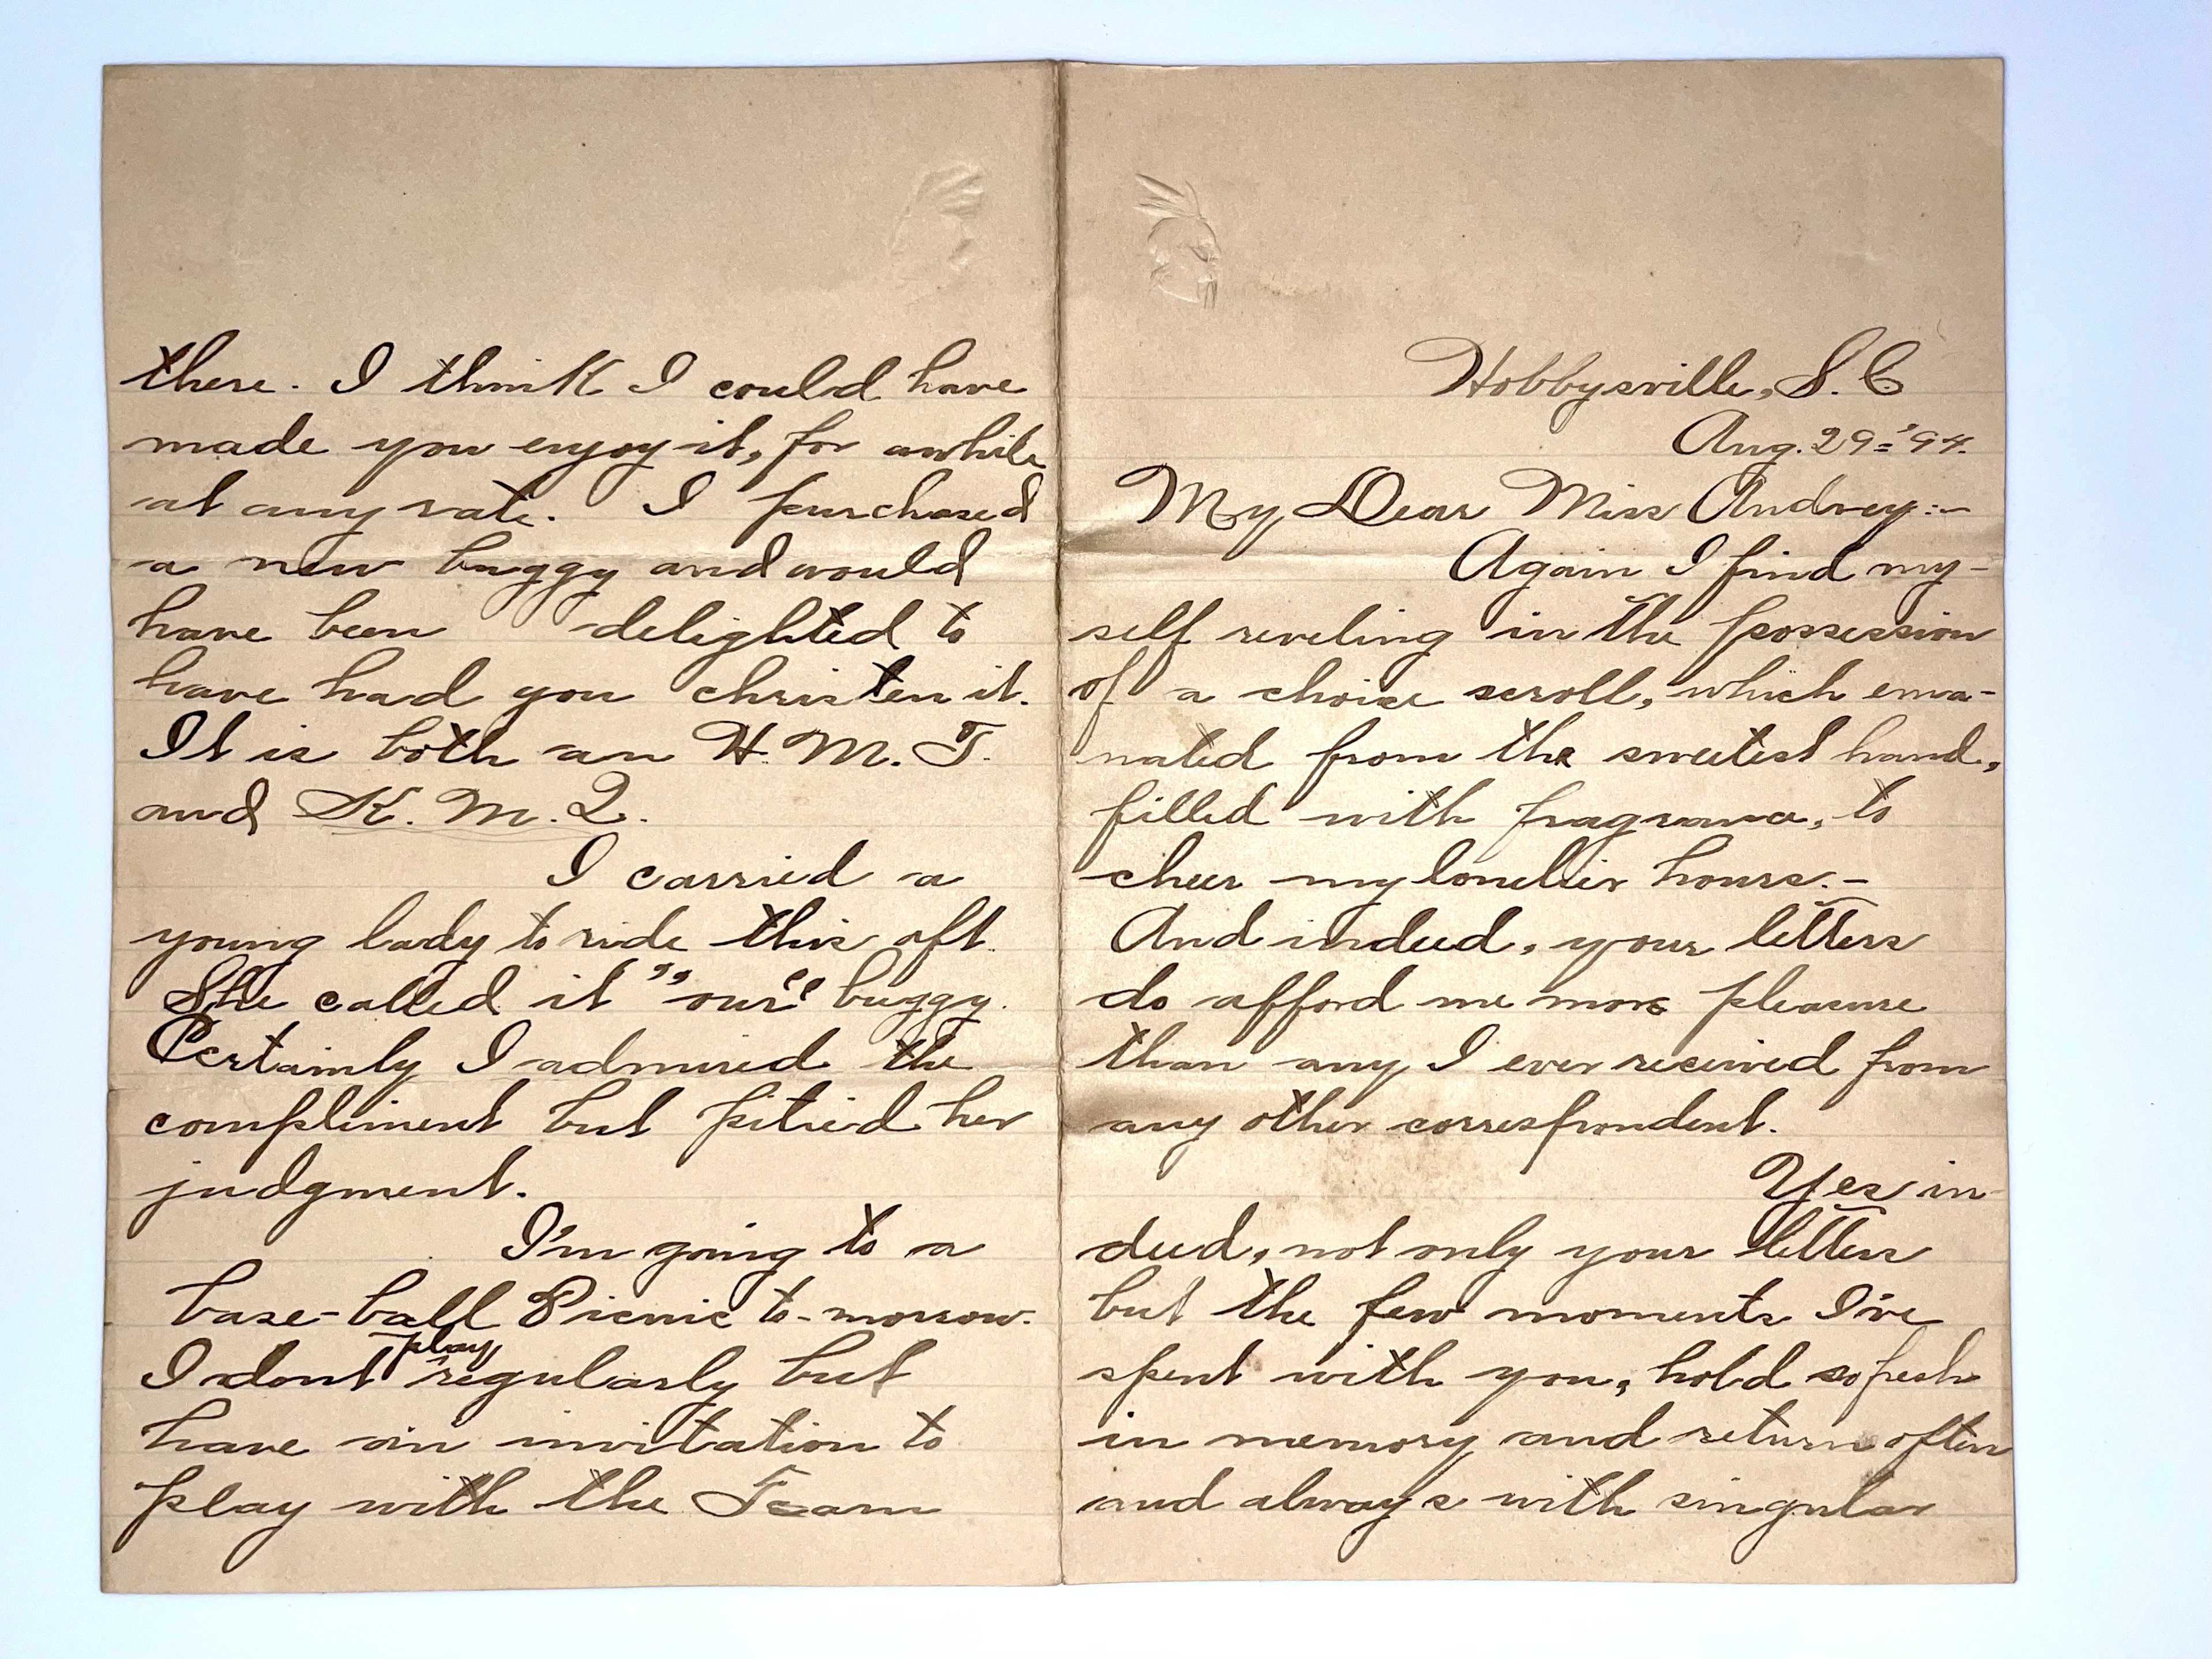 Hobbysville, S. C
Aug. 29 = '94.
My Dear Miss Audrey:-
Again I find my-
self reveling in the possession
of a choice scroll, which ema-
nated from the sweetest hand,
filled with fragrance, to
cheer my lonelier hours.-
And indeed, your letters
do afford me more pleasure
than any I ever received from
any other correspondent.
Yes in-
deed, not only your letters
but the few moments I've
spent with you, hold so fresh
in memory and return often
and always with singular
there. I think I could have
made you enjoy it, for awhile
at any rate. I purchased
a new buggy and would
have been delighted to
have had you christen it.
It is both an H. M. T.
and K. M. Q.
I carried a
young lady to ride this aft.
She called it "our" buggy.
Certainly I admired the
compliment but pitied her
judgment.
I'm going to a
base-ball Picnic to-morrow.
I dont play regularly but
have an invitation to
play with the Team